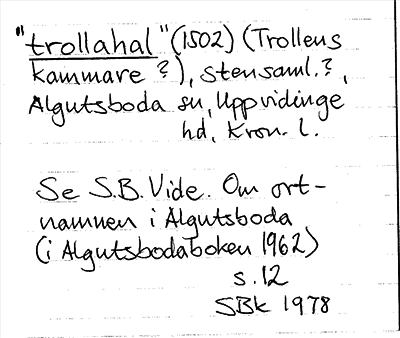 "trollahal" (1502) (Trollens
kammare ?), stensaml. ?,
Algutsboda sn, Uppvidinge
hd, Kron. l.
Se S.B. Vide. Om ort-
namnen i Algutsboda
(i Algutsbodaboken 1962)
s. 12
SBk 1978